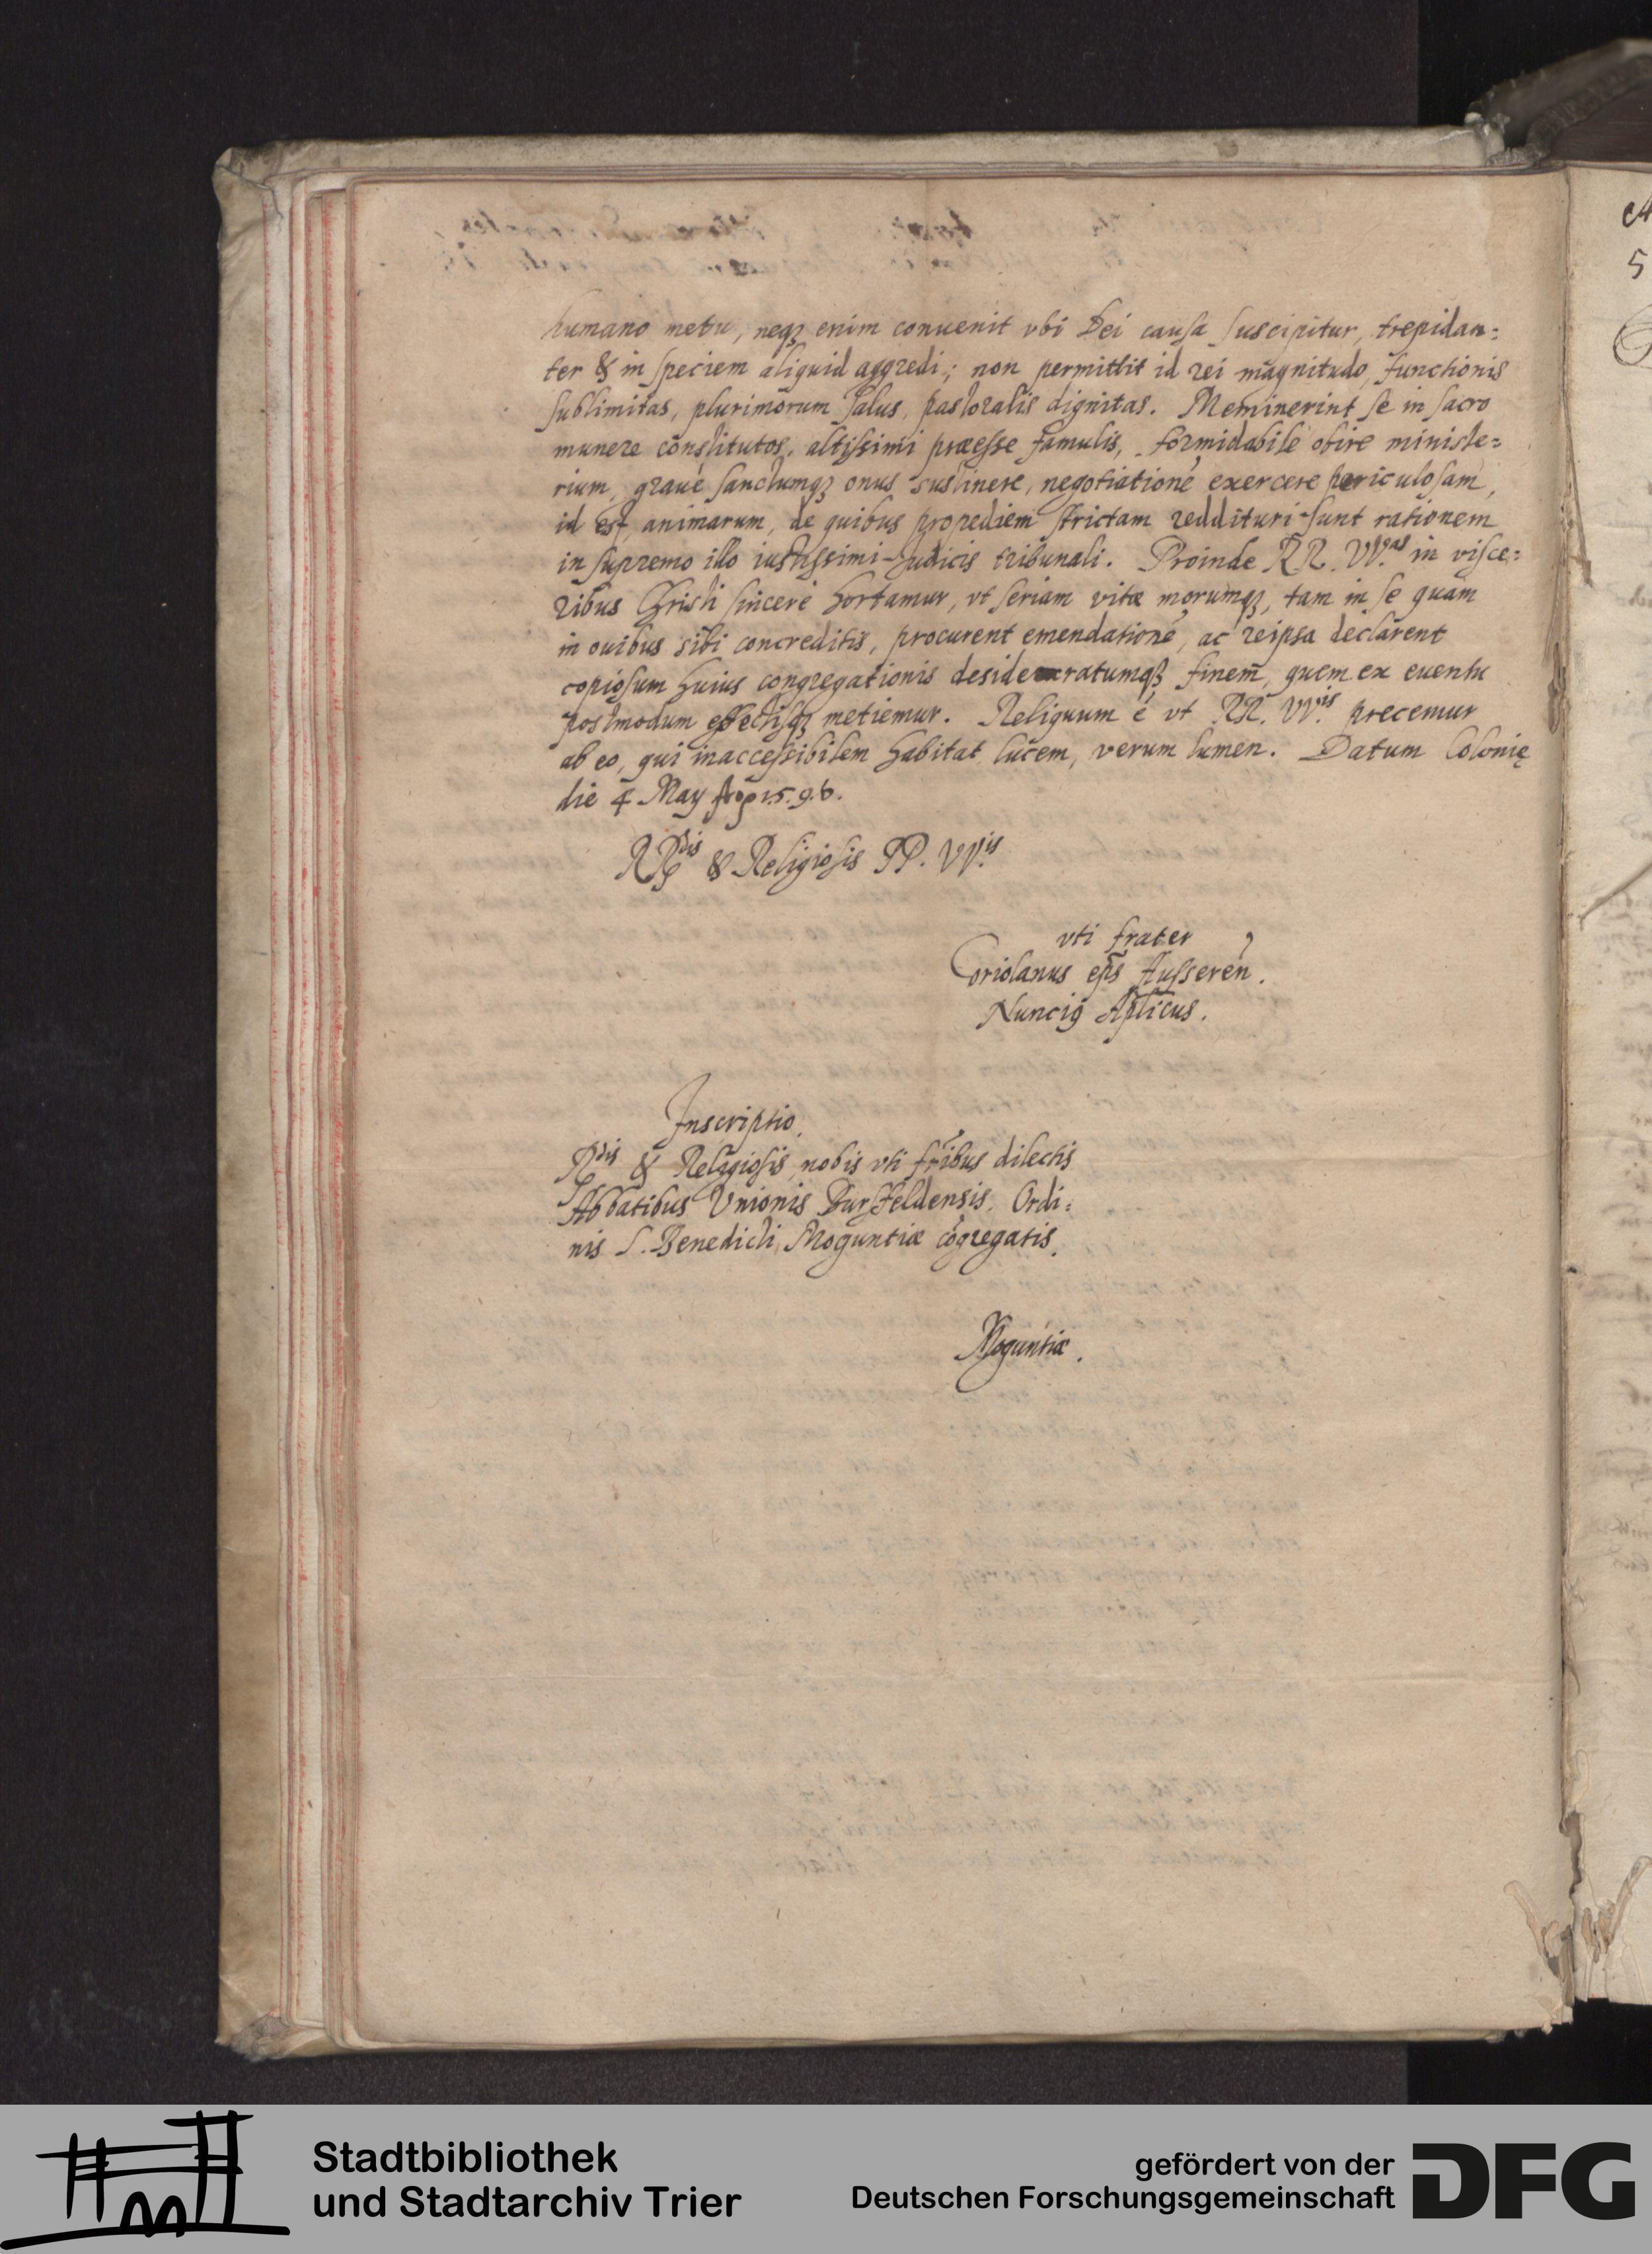 humano metu, neqȝ enim conuenit vbi Dei causa suscipitur, trepidan=
ter & in speciem aliquid aggredi; non permittit id rei magnitudo, functionis
sublimitas, plurimorum salus, pastoralis dignitas. Meminerint se in sacro
munere constitutos, altissimi præesse famulis, formidabile obire ministe=
rium, graue sanctumqȝ onus sustinere, negotiationē exercere periculosam,
id est, animarum, de quibus propediem strictam reddituri sunt rationem
in supremo illo iustissimi Judicis tribunali. Proinde RR. VV.as in visce=
ribus Christi sincere hortamur, vt seriam vitæ morumqȝ, tam in se quam
in ouibus sibi concreditis, procurent emendationē, ac reipsa declarent
copiosum huius congregationis desideratumqȝ finem, quem ex euentu
postmodum effectisqȝ metiemur. Reliquum ē vt RR. VV.is precemur
ab eo, qui inaccessibilem habitat lucem, verum lumen. Datum Colonię
die 4 May 1.5.9.6.
RR.dis & Religiosis PP. VV.is
vti frater
Coriolanus ep̄s Ausseren̄.
Nunciꝰ Ap̄licus.
Inscriptio.
R.dis & Religiosis nobis vti fr̄ibus dilectis
Abbatibus Vnionis Bursfeldensis. Ordi=
nis S. Benedicti, Moguntiæ cōgregatis.
Moguntiæ.
A
5
Stadtbibliothek
und Stadtarchiv Trier
gefördert von der
Deutschen Forschungsgemeinschaft
DFG